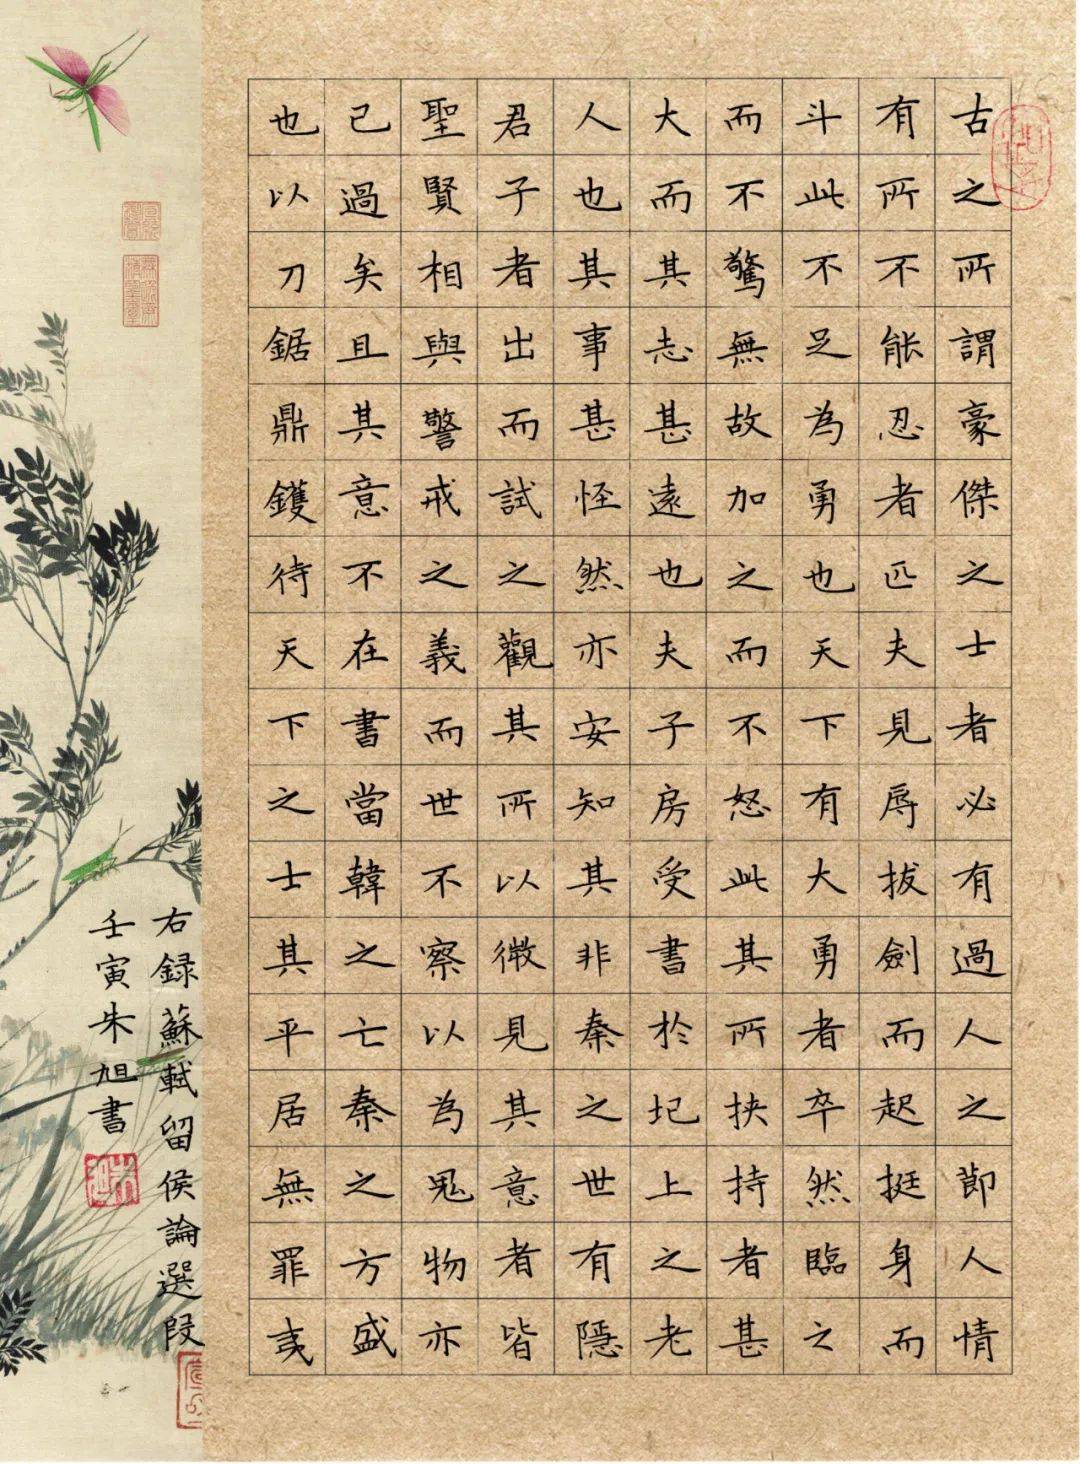 古之所謂豪傑之士者必有過人之節人情
有所不能忍者匹夫見辱拔劍而起挺身而
斗此不足為勇也天下有大勇者卒然臨之
而不驚無故加之而不怒此其所挾持者甚
大而其志甚遠也夫子房受書於圯上之老
人也其事甚怪然亦安知其非秦之世有隱
君子者出而試之觀其所以微見其意者皆
聖賢相與警戒之義而世不察以為鬼物亦
已過矣且其意不在書當韓之亡秦之方盛
也以刀鋸鼎鑊待天下之士其平居無罪夷
右録蘇軾留侯論選段
壬寅朱旭書